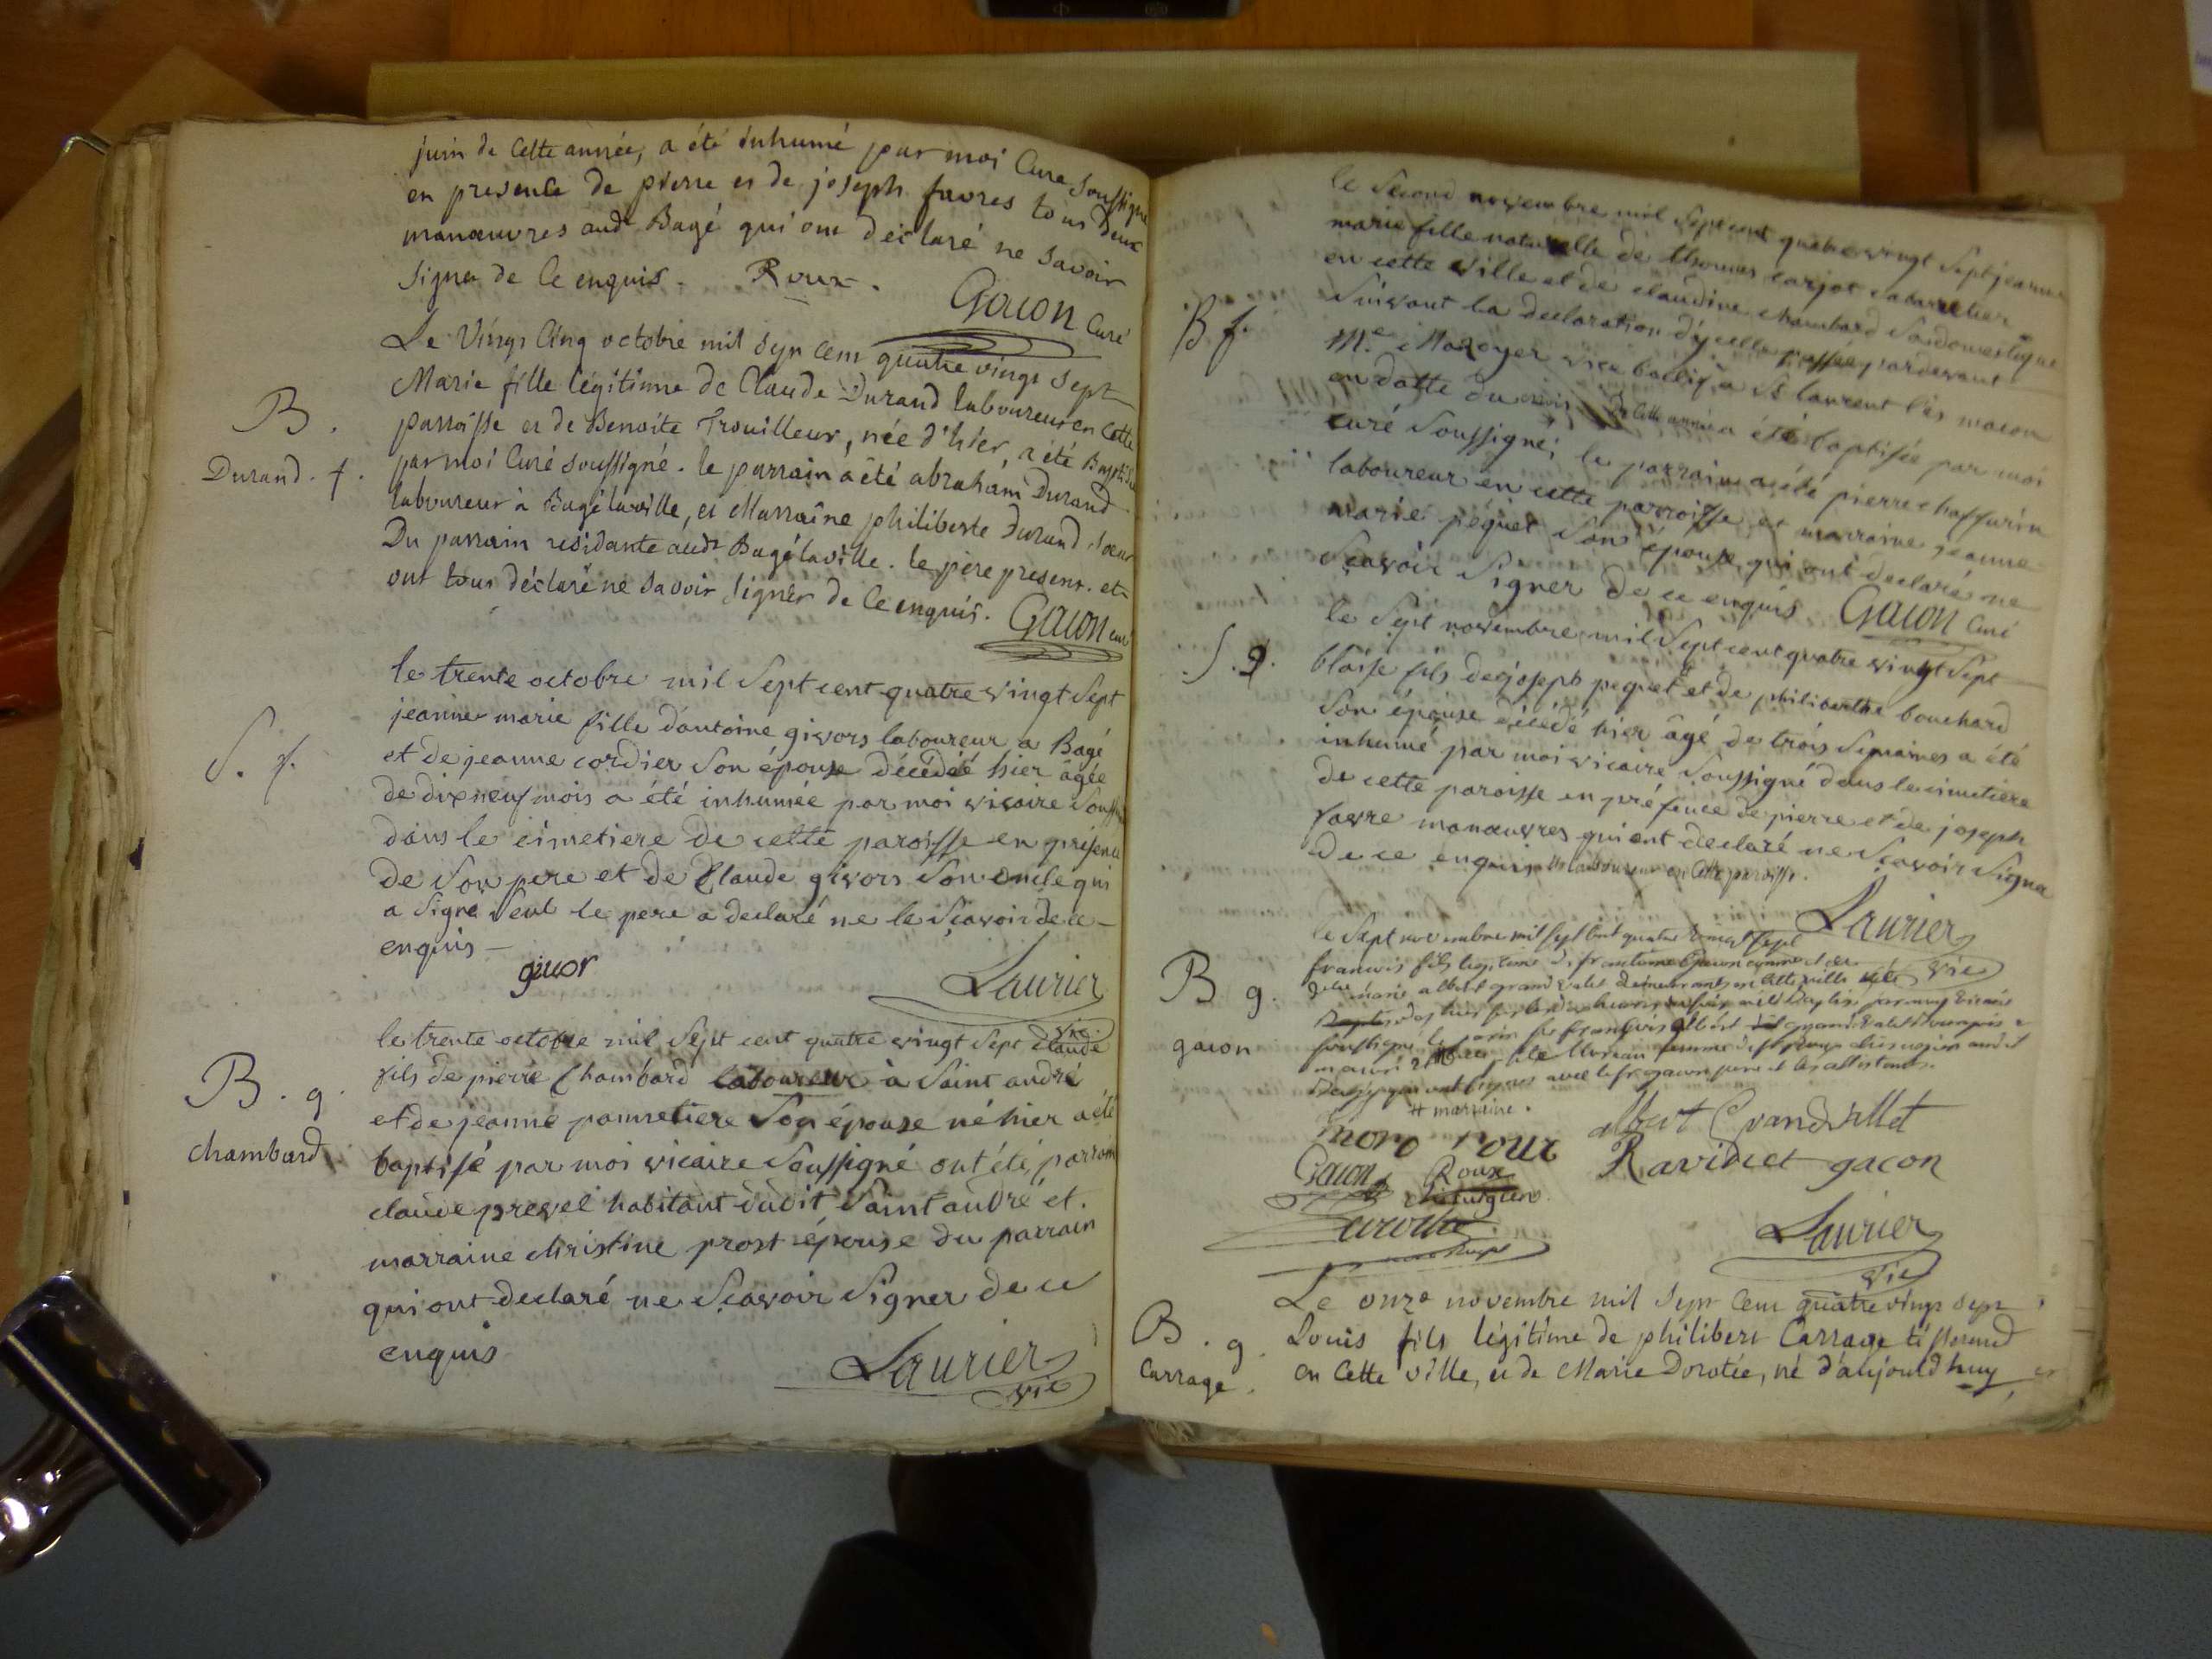 juin de Cette année, a été inhumé par moi Curé soussigné
en presence de pierre et de joseph favres tous deux
manœuvres audt Bagé qui ont déclaré ne savoir
signer de Ce enquis. Roux.
Gacon Curé
Le Vingt Cinq octobre mil sept Cent quatre vingt sept
B.
Marie fille légitime de Claude Durand laboureur en Cette
parroisse et de Benoite Trouilleux, née d'hier, a été Baptisée
Durand. f.
par moi Curé soussigné. le parrain a été abraham Durand
laboureur à Bagé laville, et Marraine philiberte Durand soeur
Du parrain residante audt Bagé laville. le père present. et
ont tous déclaré ne savoir signer de Ce enquis. Gacon curé
le trente octobre mil Sept cent quatre vingt Sept
jeanne marie fille d'antoine givors laboureur a Bagé
S. f.
et de jeanne cordier Son épouse décédée hier âgée
de dix neuf mois a été inhumée par moi vicaire Soussi
dans le cimetiere de cette paroisse en présence
de Son pere et de Claude givors Son oncle qui
a Signé Seul le pere a declaré ne le Sçavoir de ce
enquis
givor
Laurier
vic.
le trente octobre mil Sept cent quatre vingt Sept claude
B. g.
fils de pierre Chambard laboureur à Saint andré
et de jeanne pannetiere Son épouse né hier a été
chambard
baptisé par moi vicaire Soussigné ont été parrain
claude prevel habitant dudit Saint andré et
marraine christine prost épouse du parrain
qui ont declaré ne Sçavoir Signer de ce
enquis
Laurier
vic
le Second novembre mil Sept cent quatre vingt Sept jeanne
marie fille naturelle de thomas carjot cabaretier
en cette ville et de claudine chambard Sa domestique
B f.
Suivant la declaration d'ycelle passée pardevant
Me Mazoyer vice bailli à St laurent lès macon
en datte du de Cette année a été baptisée par moi
curé Soussigné; le parrain a été pierre chaffurin
laboureur en cette parroisse et marraine jeanne
marie péquet Son épouse qui ont declaré ne
Sçavoir Signer de ce enquis Gacon Curé
le Sept novembre mil Sept cent quatre vingt Sept
S. g.
blaise fils de joseph pequet et de philiberthe bouchard
Son épouse décédé hier âgé de trois Semaines a été
inhumé par moi vicaire Soussigné dans le cimetiere
de cette paroisse en présence de pierre et de joseph
favre manœuvres qui ont declaré ne Sçavoir Signer
de ce enquis laboureur en Cette paroisse.
Laurier
vic
le Sept novembre mil sept cent quatre vingt sept
B g.
francois fils legitime de
marie albert grand valet demeurants en cette ville
gacon
# marraine.
moro roux
albert Grandvallet
Gacon
Roux
chirurgien
Ravinet gacon
Laurier
vic
Le onze novembre mil Sept Cent quatre vingt sept
B. g.
Louis fils légitime de philibert Carrage tisserand
Carrage.
en Cette ville, et de Marie Dorotée, né d'aujourdhuy